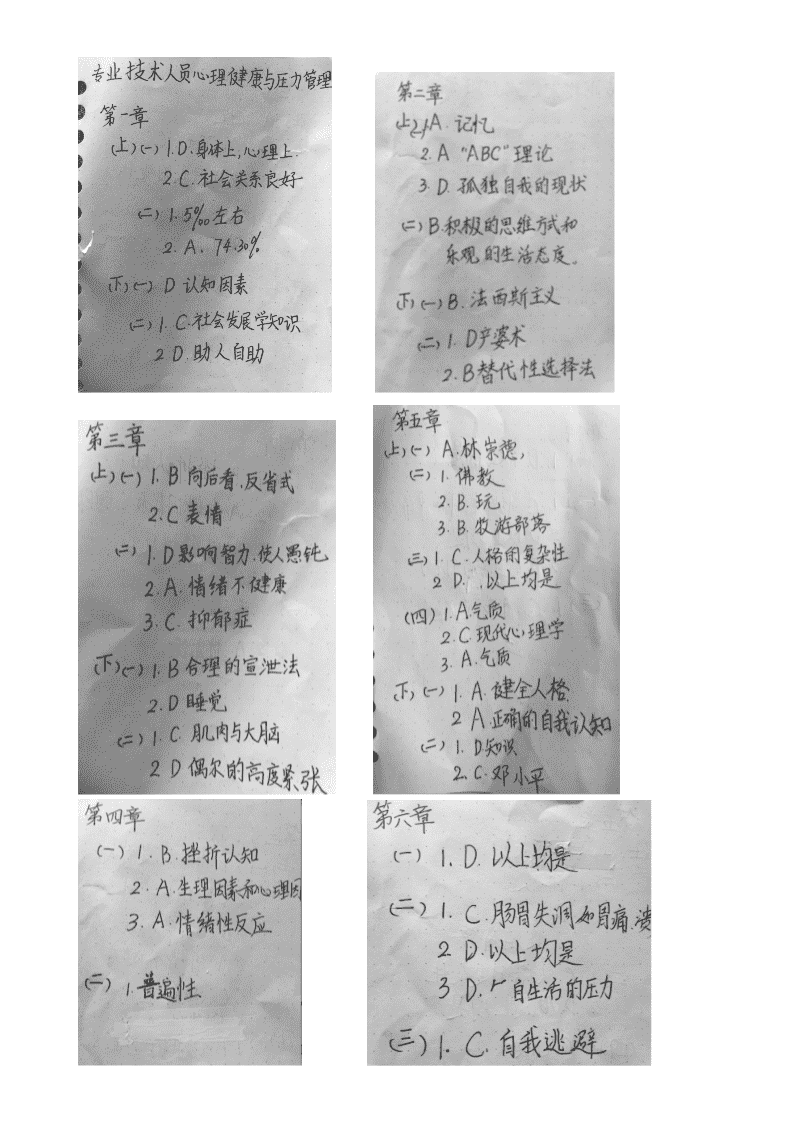 专业技术人员心理健康与压力管理
第一章
(上)(一) 1.D.身体上,心理上.
2.C.社会关系良好
(二) 1.5‰左右
2.A.74.30%
(下)(一) D 认知因素
(二) 1.C.社会发展学知识
2 D.助人自助
第二章
(上)(一)A.记忆
2.A "ABC"理论
3.D.孤独自我的现状
(二)B.积极的思维方式和
乐观的生活态度。
(下)(一)B.法西斯主义
(二)1.D产婆术
2.B替代性选择法
第三章
(上)(一) 1.B向后看,反省式
2.C表情
(二) 1.D影响智力,使人愚钝
2.A.情绪不健康
3.C.抑郁症
(下)(一) 1.B合理的宣泄法
2.D睡觉
(二) 1.C肌肉与大脑
2 D偶尔的高度紧张
第五章
(上)(一) A.林崇德,
(二) 1.佛教
2.B.玩
3.B.牧游部落
(三) 1.C.人格的复杂性
2 D.以上均是
(四) 1.A.气质
2.C现代心理学
3.A.气质
(下)(一) 1.A.健全人格
2 A.正确的自我认知
(二) 1.D知识
2.C.邓小平
第四章
(一) 1.B.挫折认知
2.A.生理因素和心理因
3.A.情绪性反应
(二) 1.普遍性
第六章
(一) 1.D.以上均是
(二) 1.C.肠胃失调如胃痛,溃
2 D.以上均是
3 D.自生活的压力
(三) 1.C.自我逃避